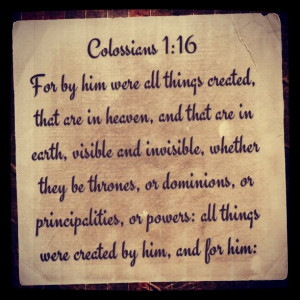 Colossians 1:16
For by him were all things created,
that are in heaven, and that are in
earth, visible and invisible, whether
they be thrones, or dominions, or
principalities, or powers: all things
were created by him, and for him: